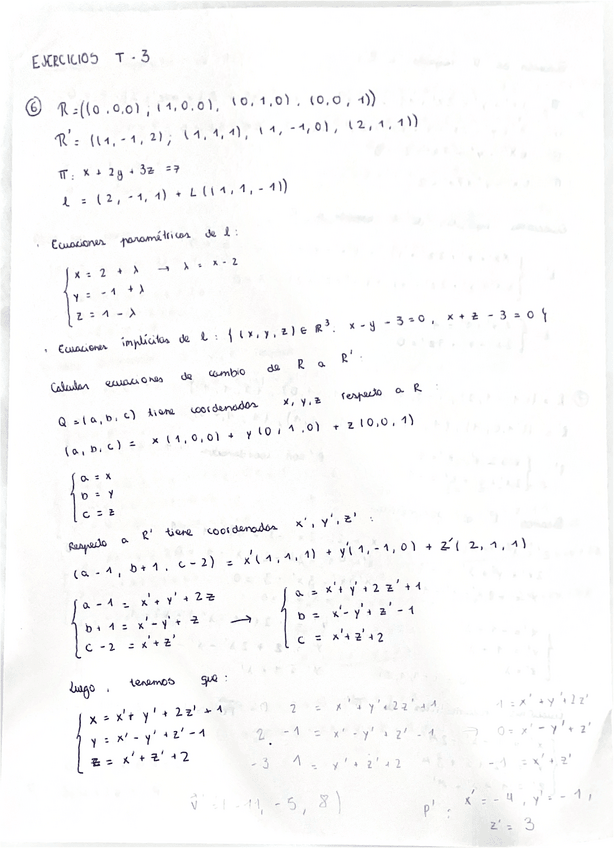 EJERCICIOS T-3
⑥ R=((0,0,0); (1,0,0), (0,1,0), (0,0,1))
R'= ((1,-1,2); (1,1,1), (1,-1,0), (2,1,1))
π: x + 2y + 3z = 7
l = (2,-1,1) + L((1,1,-1))
· Ecuaciones paramétricas de l:
x = 2 + λ → λ = x-2
y = -1 + λ
z = 1 - λ
· Ecuaciones implícitas de l: {(x,y,z) ∈ R³. x-y-3=0, x+z-3=0}
Calcular ecuaciones de cambio de R a R':
Q=(a,b,c) tiene coordenadas x,y,z respecto a R:
(a,b,c) = x(1,0,0) + y(0,1,0) + z(0,0,1)
a = x
b = y
c = z
Respecto a R' tiene coordenadas x', y', z':
(a-1, b+1, c-2) = x'(1,1,1) + y'(1,-1,0) + z'(2,1,1)
a-1 = x'+y'+2z → a = x'+y'+2z'+1
b+1 = x'-y'+z b = x'-y'+z'-1
c-2 = x'+z' c = x'+z'+2
Luego, tenemos que:
x = x'+y'+2z'+1 2 = x'+y'+2z'+1 1 = x'+y'+2z'
y = x'-y'+z'-1 2 -1 = x'-y'+z'-1 0 = x'-y'+z'
z = x'+z'+2 -3 1 = x'+z'+2 -1 = x'+z'
v = (-11,-5,8) p': x'=-4, y'=-1,
z'=3